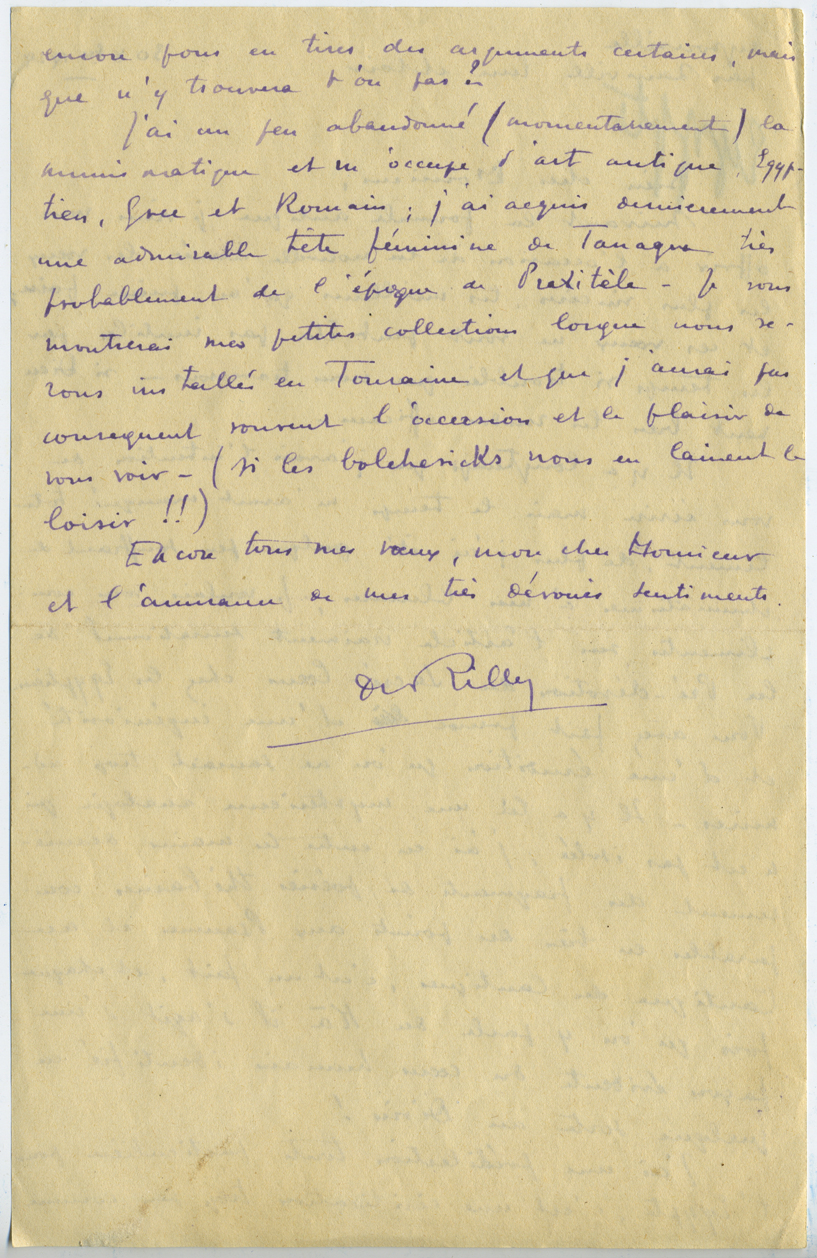 encore pour en tirer des arguments certains, mais
que n'y trouvera t'on pas ?
J'ai un peu abandonné (momentanement) la
numismatique et m'occupe d'art antique, Egyp-
tien, Grec et Romain ; j'ai acquis dernierement
une admirable tête féminine de Tanagra très
probablement de l'époque de Praxitèle - Je vous
montrerai mes petites collections lorsque nous se-
rons installés en Touraine et que j'aurai par
consequent souvent l'occasion et le plaisir de
vous voir - (si les bolchevicks nous en laissent le
loisir !!)
Encore tous mes vœux, mon cher Monsieur
et l'assurance de mes très dévoués sentiments.
de Rilly